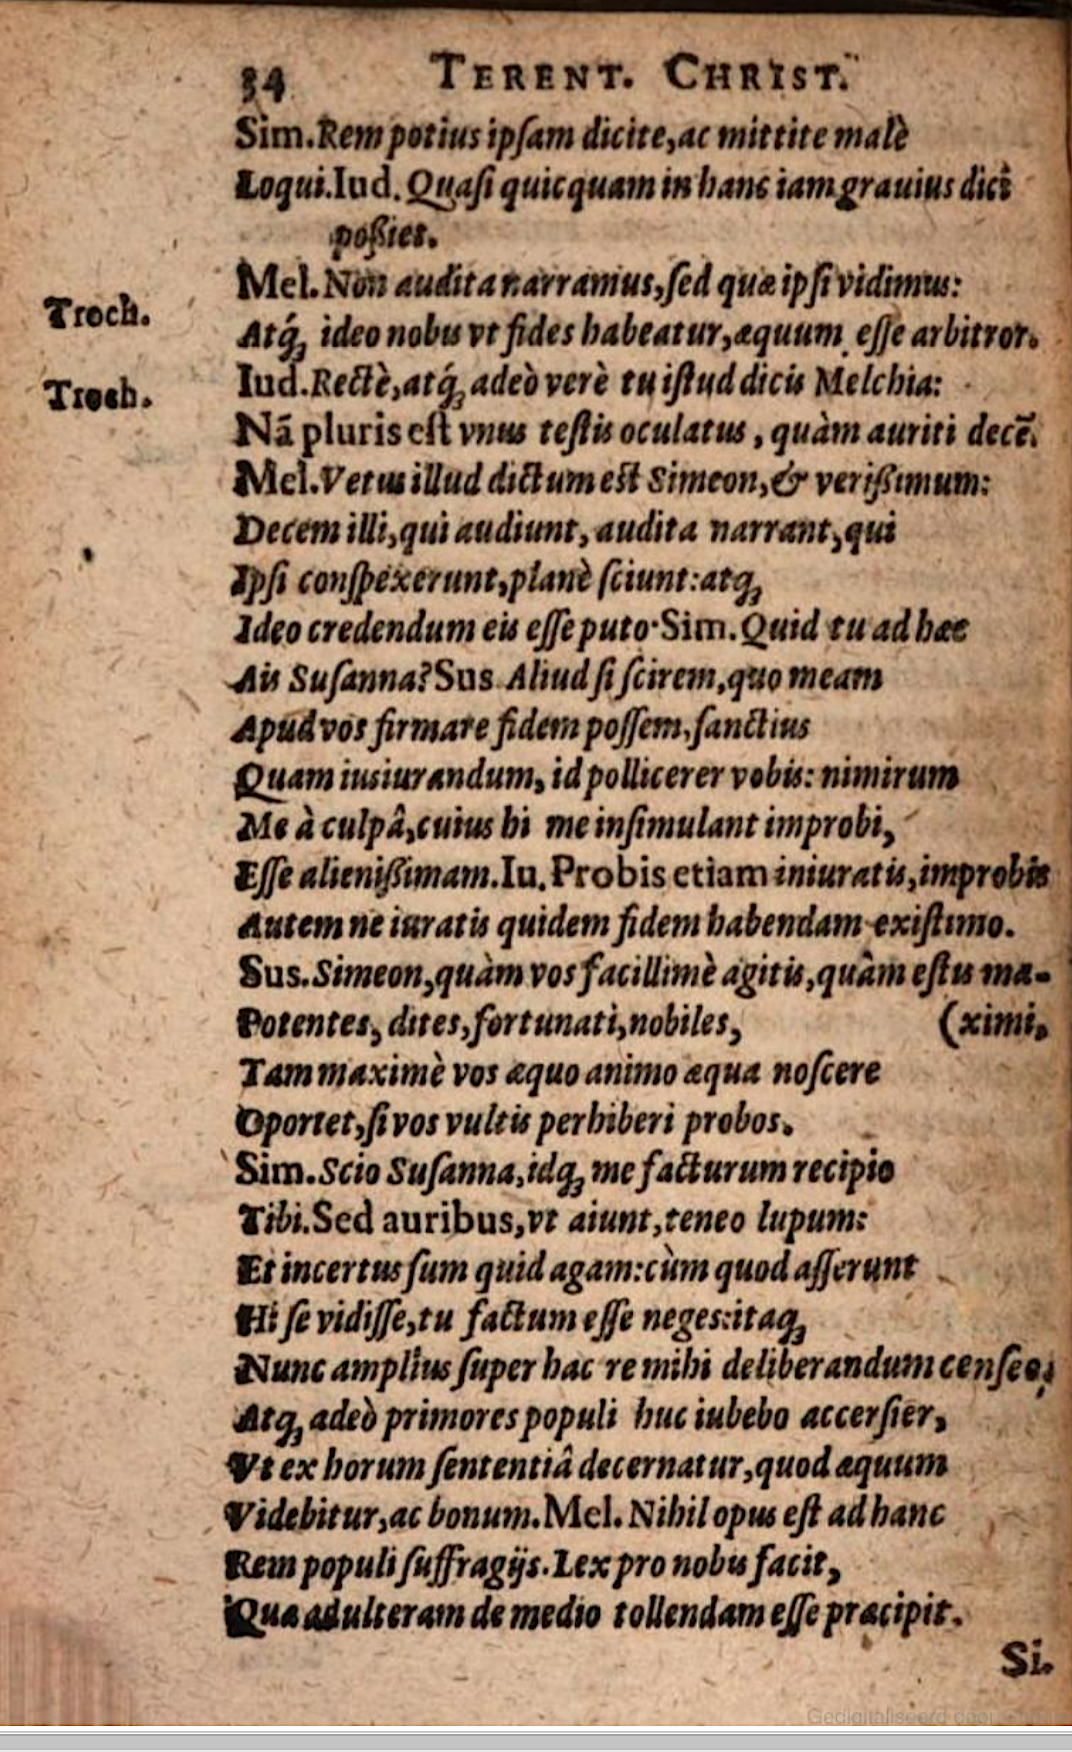 34 TERENT. CHRIST.
Sim. Rem potius ipſam dicite, ac mittite malè
Loqui. Iud. Quaſi quicquam in hanc iam grauius dici
poßiet.
Mel. Non audita narramus, ſed quæ ipſi vidimus:
Troch.
Atq́; ideo nobis vt fides habeatur, æquum eſſe arbitror.
Troch.
Iud. Rectè, atq́; adeò verè tu iſtud dicis Melchia:
Nã pluris eſt vnus teſtis oculatus, quàm auriti decẽ.
Mel. Vetus illud dictum eſt Simeon, & verißimum:
Decem illi, qui audiunt, audita narrant, qui
Ipſi conſpexerunt, planè ſciunt: atq;
Ideo credendum eis eſſe puto. Sim. Quid tu ad hæc
Ais Suſanna? Sus. Aliud ſi ſcirem, quo meam
Apud vos firmare fidem poſſem, ſanctius
Quam iusiurandum, id pollicerer vobis: nimirum
Me à culpâ, cuius hi me inſimulant improbi,
Eſſe alienißimam. Iu. Probis etiam iniuratis, improbis
Autem ne iuratis quidem fidem habendam exiſtimo.
Sus. Simeon, quàm vos facillimè agitis, quàm eſtis ma-
Potentes, dites, fortunati, nobiles, (ximi,
Tam maximè vos æquo animo æqua noſcere
Oportet, ſi vos vultis perhiberi probos.
Sim. Scio Suſanna, idq; me facturum recipio
Tibi. Sed auribus, vt aiunt, teneo lupum:
Et incertus ſum quid agam: cùm quod aſſerunt
Hi ſe vidiſſe, tu factum eſſe neges: itaq;
Nunc amplius ſuper hac re mihi deliberandum cenſeo,
Atq; adeò primores populi huc iubebo accerſier,
Vt ex horum ſententiâ decernatur, quod æquum
Videbitur, ac bonum. Mel. Nihil opus eſt ad hanc
Rem populi ſuffragijs. Lex pro nobis facit,
Quæ adulteram de medio tollendam eſſe præcipit.
Si.